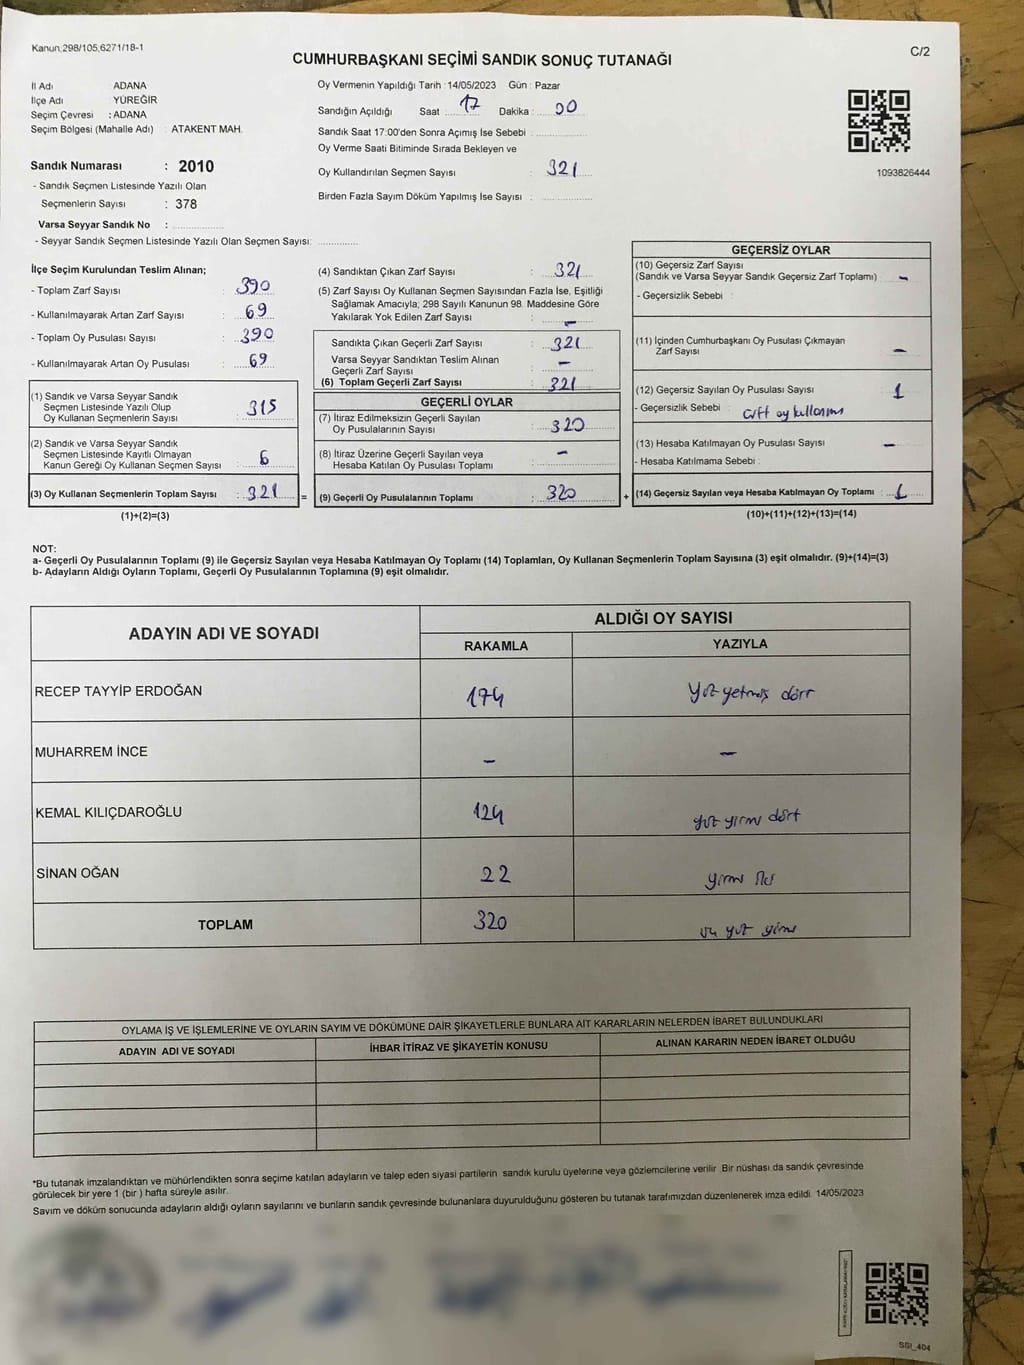 Kanun;298/105,6271/18-1
C/2
CUMHURBAŞKANI SEÇİMİ SANDIK SONUÇ TUTANAĞI
İl Adı ADANA
İlçe Adı YÜREĞİR
Seçim Çevresi : ADANA
Seçim Bölgesi (Mahalle Adı) : ATAKENT MAH.
Oy Vermenin Yapıldığı Tarih :14/05/2023 Gün : Pazar
Sandığın Açıldığı Saat 17 Dakika : 00
Sandık Saat 17:00'den Sonra Açımış İse Sebebi :
Oy Verme Saati Bitiminde Sırada Bekleyen ve
Oy Kullandırılan Seçmen Sayısı : 321
Birden Fazla Sayım Döküm Yapılmış İse Sayısı :
1093826444
Sandık Numarası : 2010
- Sandık Seçmen Listesinde Yazılı Olan
Seçmenlerin Sayısı : 378
Varsa Seyyar Sandık No :
- Seyyar Sandık Seçmen Listesinde Yazılı Olan Seçmen Sayısı:
İlçe Seçim Kurulundan Teslim Alınan;
- Toplam Zarf Sayısı : 390
- Kullanılmayarak Artan Zarf Sayısı : 69
- Toplam Oy Pusulası Sayısı : 390
- Kullanılmayarak Artan Oy Pusulası : 69
(1) Sandık ve Varsa Seyyar Sandık
Seçmen Listesinde Yazılı Olup
Oy Kullanan Seçmenlerin Sayısı : 315
(2) Sandık ve Varsa Seyyar Sandık
Seçmen Listesinde Kayıtlı Olmayan
Kanun Gereği Oy Kullanan Seçmen Sayısı : 6
(3) Oy Kullanan Seçmenlerin Toplam Sayısı : 321 =
(1)+(2)=(3)
(4) Sandıktan Çıkan Zarf Sayısı : 321
(5) Zarf Sayısı Oy Kullanan Seçmen Sayısından Fazla İse, Eşitliği
Sağlamak Amacıyla; 298 Sayılı Kanunun 98. Maddesine Göre
Yakılarak Yok Edilen Zarf Sayısı : -
Sandıkta Çıkan Geçerli Zarf Sayısı : 321
Varsa Seyyar Sandıktan Teslim Alınan
Geçerli Zarf Sayısı : -
(6) Toplam Geçerli Zarf Sayısı : 321
GEÇERLİ OYLAR
(7) İtiraz Edilmeksizin Geçerli Sayılan
Oy Pusulalarının Sayısı : 320
(8) İtiraz Üzerine Geçerli Sayılan veya
Hesaba Katılan Oy Pusulası Toplamı : -
(9) Geçerli Oy Pusulalarının Toplamı : 320 +
GEÇERSİZ OYLAR
(10) Geçersiz Zarf Sayısı
(Sandık ve Varsa Seyyar Sandık Geçersiz Zarf Toplamı) : -
- Geçersizlik Sebebi :
(11) İçinden Cumhurbaşkanı Oy Pusulası Çıkmayan
Zarf Sayısı : -
(12) Geçersiz Sayılan Oy Pusulası Sayısı : 1
- Geçersizlik Sebebi : çift oy kullanımı
(13) Hesaba Katılmayan Oy Pusulası Sayısı : -
- Hesaba Katılmama Sebebi :
(14) Geçersiz Sayılan veya Hesaba Katılmayan Oy Toplamı : 1
(10)+(11)+(12)+(13)=(14)
NOT:
a- Geçerli Oy Pusulalarının Toplamı (9) ile Geçersiz Sayılan veya Hesaba Katılmayan Oy Toplamı (14) Toplamları, Oy Kullanan Seçmenlerin Toplam Sayısına (3) eşit olmalıdır. (9)+(14)=(3)
b- Adayların Aldığı Oyların Toplamı, Geçerli Oy Pusulalarının Toplamına (9) eşit olmalıdır.
ADAYIN ADI VE SOYADI
ALDIĞI OY SAYISI
RAKAMLA YAZIYLA
RECEP TAYYİP ERDOĞAN 174 yüz yetmiş dört
MUHARREM İNCE - -
KEMAL KILIÇDAROĞLU 124 yüz yirmi dört
SİNAN OĞAN 22 yirmi iki
TOPLAM 320 üç yüz yirmi
OYLAMA İŞ VE İŞLEMLERİNE VE OYLARIN SAYIM VE DÖKÜMÜNE DAİR ŞİKAYETLERLE BUNLARA AİT KARARLARIN NELERDEN İBARET BULUNDUKLARI
ADAYIN ADI VE SOYADI İHBAR İTİRAZ VE ŞİKAYETİN KONUSU ALINAN KARARIN NEDEN İBARET OLDUĞU
*Bu tutanak imzalandıktan ve mühürlendikten sonra seçime katılan adayların ve talep eden siyasi partilerin sandık kurulu üyelerine veya gözlemcilerine verilir .Bir nüshası da sandık çevresinde
görülecek bir yere 1 (bir ) hafta süreyle asılır.
Sayım ve döküm sonucunda adayların aldığı oyların sayılarını ve bunların sandık çevresinde bulunanlara duyurulduğunu gösteren bu tutanak tarafımızdan düzenlenerek imza edildi. 14/05/2023
SGI_404